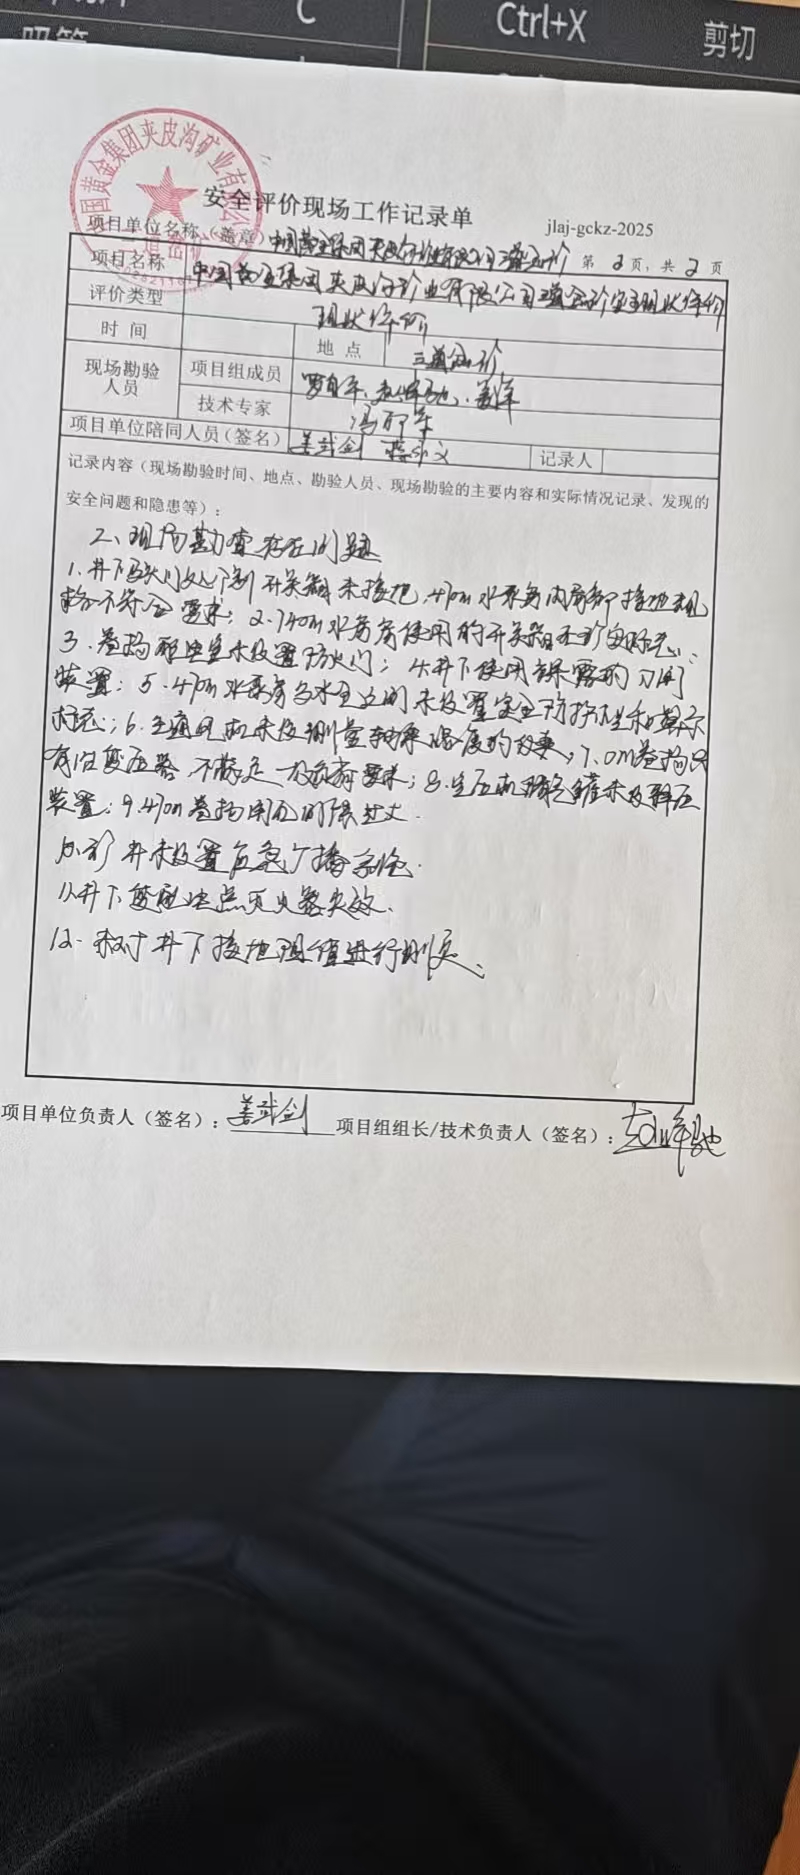 C
Ctrl+X
剪切
中国黄金集团夹皮沟矿业有限公司
安全评价现场工作记录单
jlaj-gckz-2025
项目单位名称（盖章）中国黄金集团夹皮沟矿业有限公司 第 2 页，共 2 页
项目名称 中国黄金集团夹皮沟矿业有限公司 现状评价
评价类型 现状评价
时 间 地 点
现场勘验人员 项目组成员
技术专家
项目单位陪同人员（签名） 姜武剑 记录人
记录内容（现场勘验时间、地点、勘验人员、现场勘验的主要内容和实际情况记录、发现的
安全问题和隐患等）：
二、现场勘查存在问题
1.井下 开关箱未接地，470m水泵房内局部接地
不符合要求；2.740m水泵房使用的开关箱无矿安标志；
3.卷扬配电室未设置防火门；4.井下使用裸露的刀闸
装置；5.470m水泵房 未设置安全防护 和警示
标志；6.主通风机未设测量轴承温度的 ；7.0m卷扬只
有 变压器，不满足一级负荷要求；8.空压机 罐未设释压
装置；9.470m卷扬
10.矿井未设置应急广播系统.
11.井下变配电点灭火器失效.
12.未对井下接地阻值进行测定、
项目单位负责人（签名）：姜武剑 项目组组长/技术负责人（签名）：